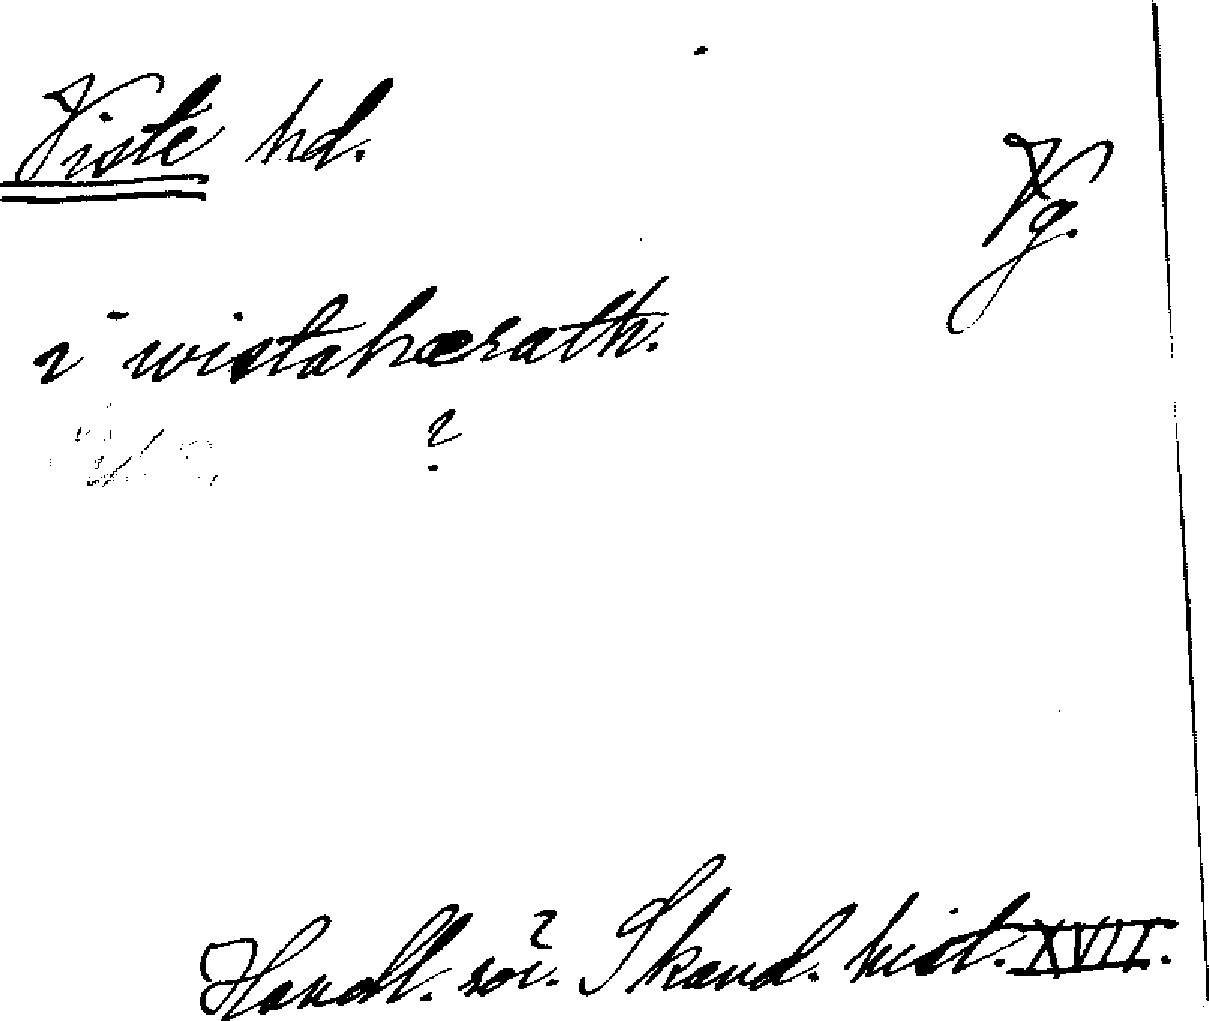 Viste hd.
Vg.
i wistahærath.
?
Handl. rör. Skand. hist. XVII.